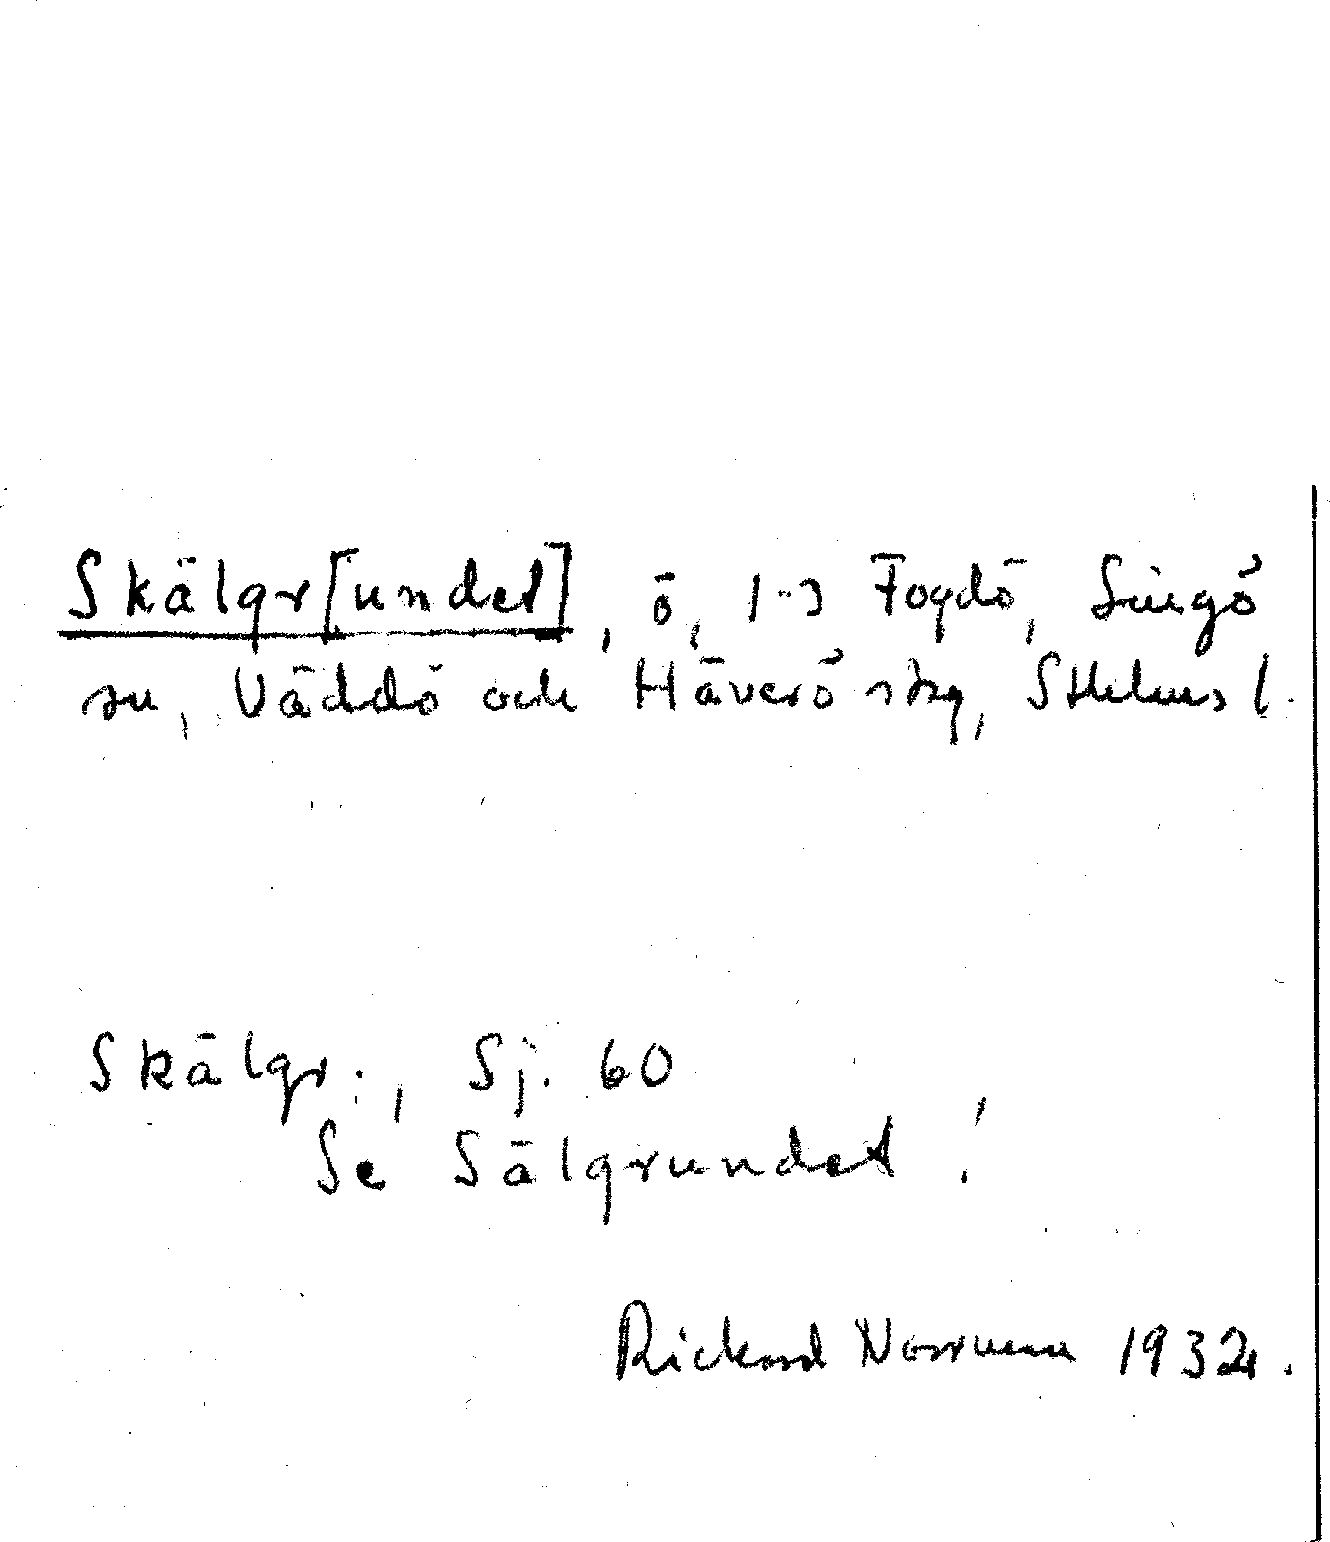 Skälgr[undet], ö, Fogdö, Singö
sn, Väddö och Häverö skg, Sthlms l.
Skälgr., Sj. 60
Se Sälgrundet!
Rickard Norrman 1932.